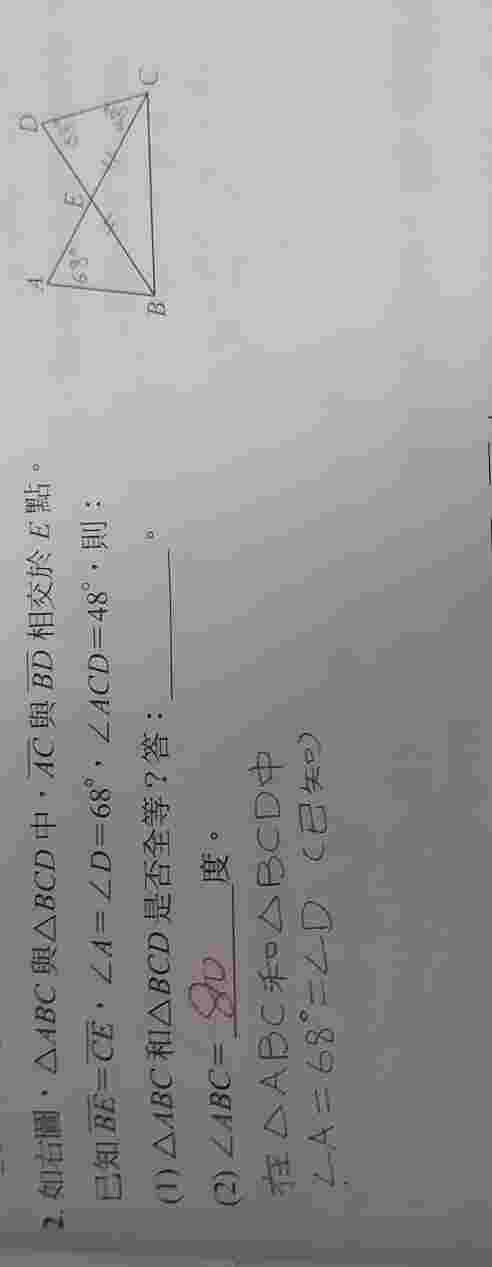 2. 如右圖，△ABC 與△BCD 中，AC 與 BD 相交於 E 點。
已知 BE=CE，∠A=∠D=68°，∠ACD=48°，則：
(1) △ABC 和△BCD 是否全等？答：＿＿＿＿。
(2) ∠ABC= 80 度。
在△ABC和△BCD中
∠A=68°=∠D (已知)
A
D
E
B
C
68°